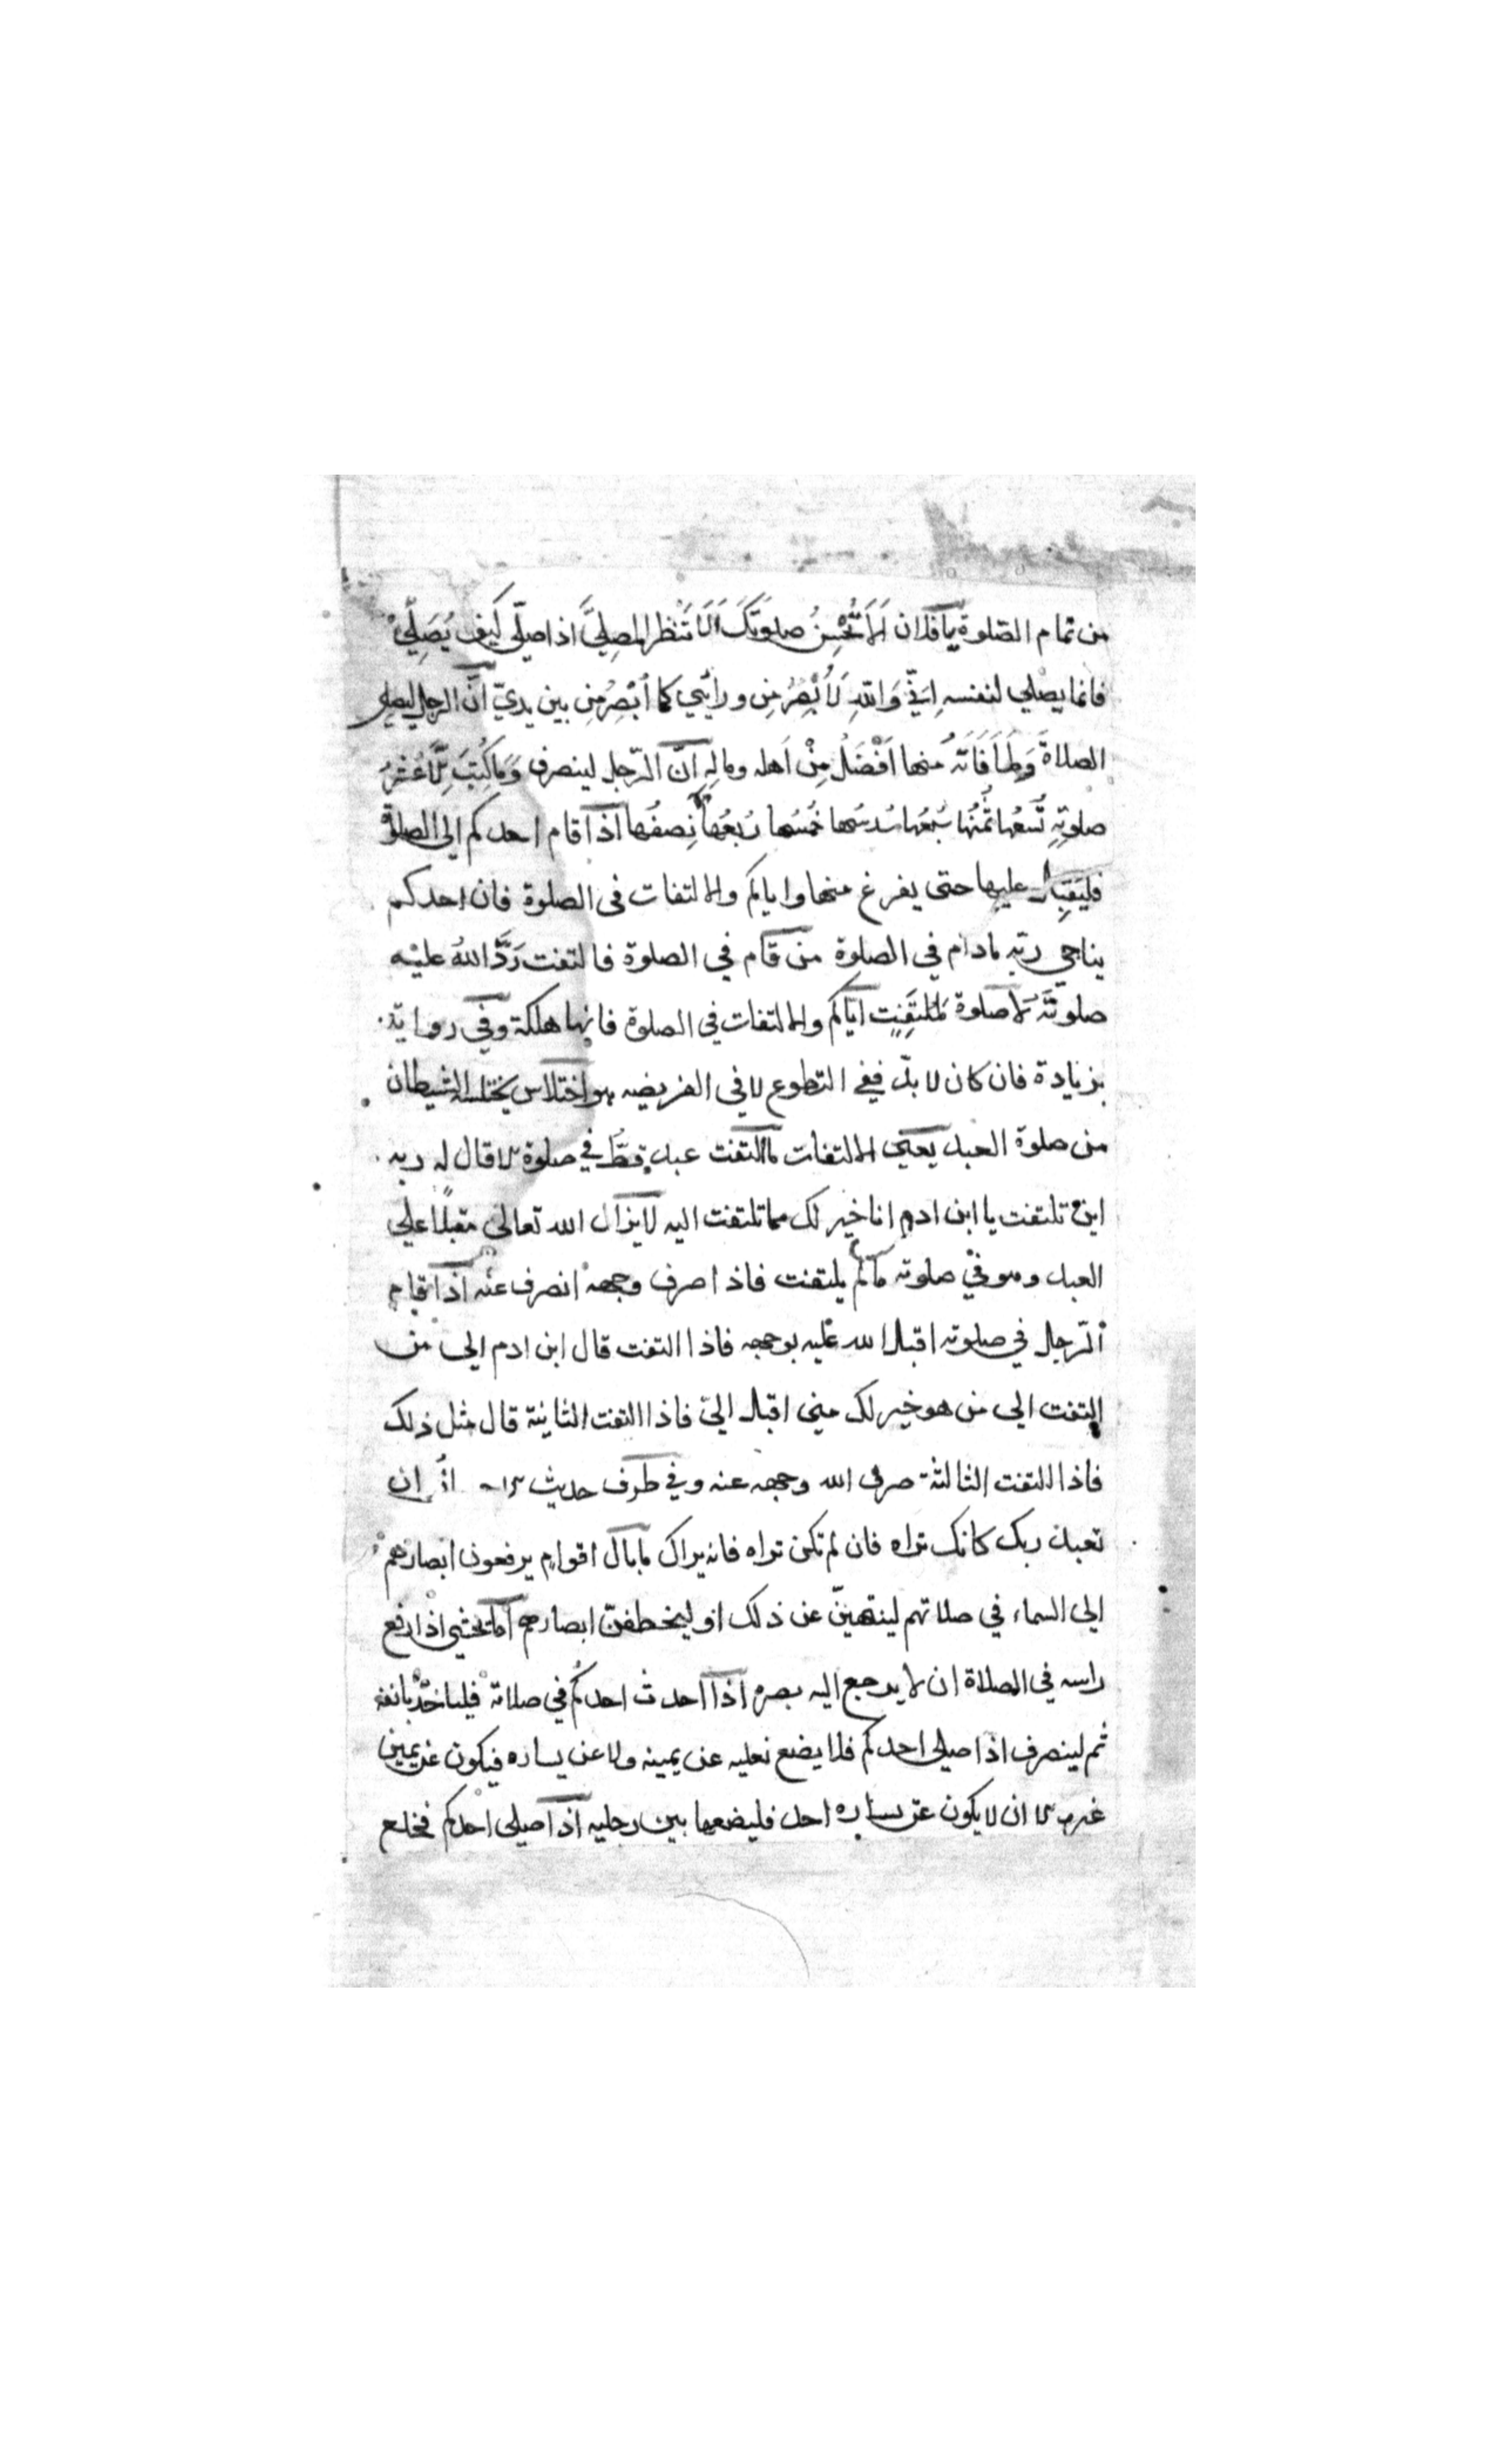 من تمام الصّلوة يا فلان اَلَا تُحْسِنُ صلوتَكَ اَلَا تَنْظر المصلِّيَ اذا صلّى كَيْفَ يُصَلِّيْ
فانما يصلي لنفسه اِنِّيْ وَاللهِ لَاُبْصِرُ مِن ورائي كما اُبْصِرُ مِن بين يديّ انّ الرجل ليصلي
الصلاةَ وَلَمَا فَاتَهُ منها اَفْضَلُ مِنْ اَهله وماله انّ الرّجل لينصرف وَمَا كُتِبَ لَهُ اِلَّا عُشْرُ
صلوتِهِ تُسعُها ثُمُنُها سُبعُها سُدسُها خُمسُها رُبعُها نِصفُها اذا قام احدكم الى الصلوة
فليُقبِل عليها حتى يفرغ منها واياكم والالتفات في الصلوة فان احدكم
يناجي ربّه مادام في الصلوة من قام في الصلوة فالتفت رَدَّ اللهُ عليْه
صلوتَهُ لا صلوة لملتفِتٍ اياكم والالتفات في الصلوة فانها هلكة وفي رواية
بزيادة فان كان لا بدّ ففي التطوع لا في الفريضه هو اختلاس يختلسه الشيطان
من صلوة العبد يعني الالتفات ما التفت عبد قطّ في صلوة الا قال له ربه
اين تلتفت يا ابن ادم انا خير لك مما تلتفت اليه لا يزال الله تعالى مقبلًا على
العبد وهو في صلوته مالم يلتفت فاذا صرف وجهه انصرف عنه اذا قام
الرّجل في صلوته اقبل الله عليه بوجهه فاذا التفت قال ابن ادم الى من
التفت الى من هو خير لك مني اقبل اليّ فاذا التفت الثانية قال مثل ذلك
فاذا التفت الثالثة صرف الله وجهه عنه وفي طرف حديث ان
تعبد ربك كانك تراه فان لم تكن تراه فانه يراك ما بال اقوام يرفعون ابصارهم
الى السماء في صلاتهم لينتهينّ عن ذلك او ليخطفنّ ابصارهم اما يخشى اذا رفع
راسه في الصلاة ان لا يرجع اليه بصره اذا احدث احدكم في صلاته فلياخذ بانفه
ثم لينصرف اذا صلى احدكم فلا يضع نعليه عن يمينه ولا عن يساره فيكون عن يمين
غيره الا ان لا يكون عن يساره احد فليضعها بين رجليه اذا صلى احدكم فخلع